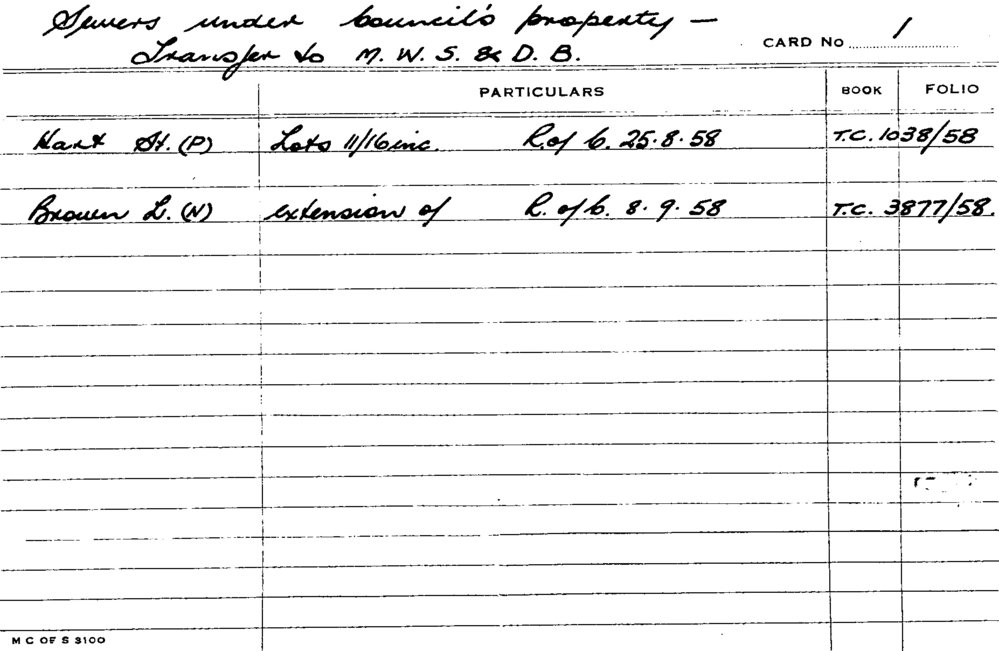 Sewers under Council's property —
Transfer to M. W. S. & D. B.
CARD No 1
PARTICULARS BOOK FOLIO
Hart St. (P) Lots 11/16 inc. R. of C. 25.8.58 T.C. 1038/58
Brown L. (N) extension of R. of C. 8.9.58 T.C. 3877/58.
M C OF S 3100